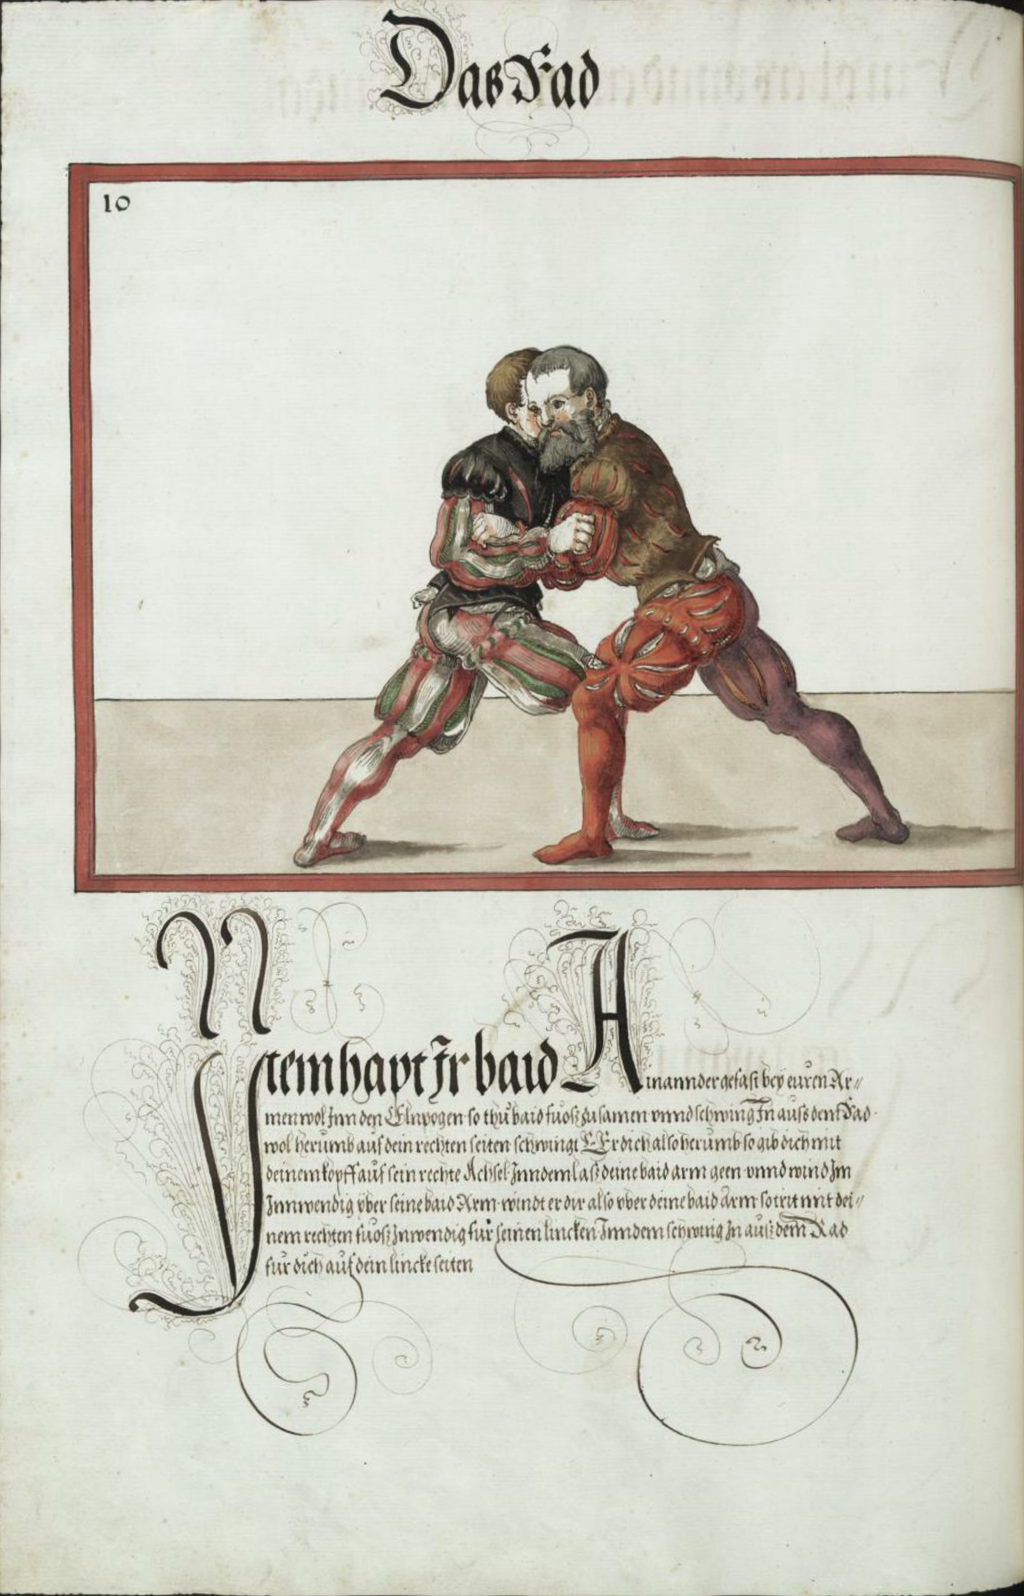 Das Rad
10
Item hapt Ir baid Ainannder gefast bey euren Ar//
men wol Jnn den Elnpogen so thů baid fuosz zusamen vnnd schwing In auss dem Rad
wol herumb auf dein rechten seiten schwingt Er dich also herumb so gib dich mit
deinem kopff auf sein rechte Achsel Inndem lasz deine baid arm geen vnnd wind Im
Innwendig vber seine baid Arm windt er dir also vber deine baid Arm so trit mit dei//
nem rechten fuosz Inwendig fur seinen lincken Inndem schwing In ausz dem Rad
fur dich auf dein lincke seiten